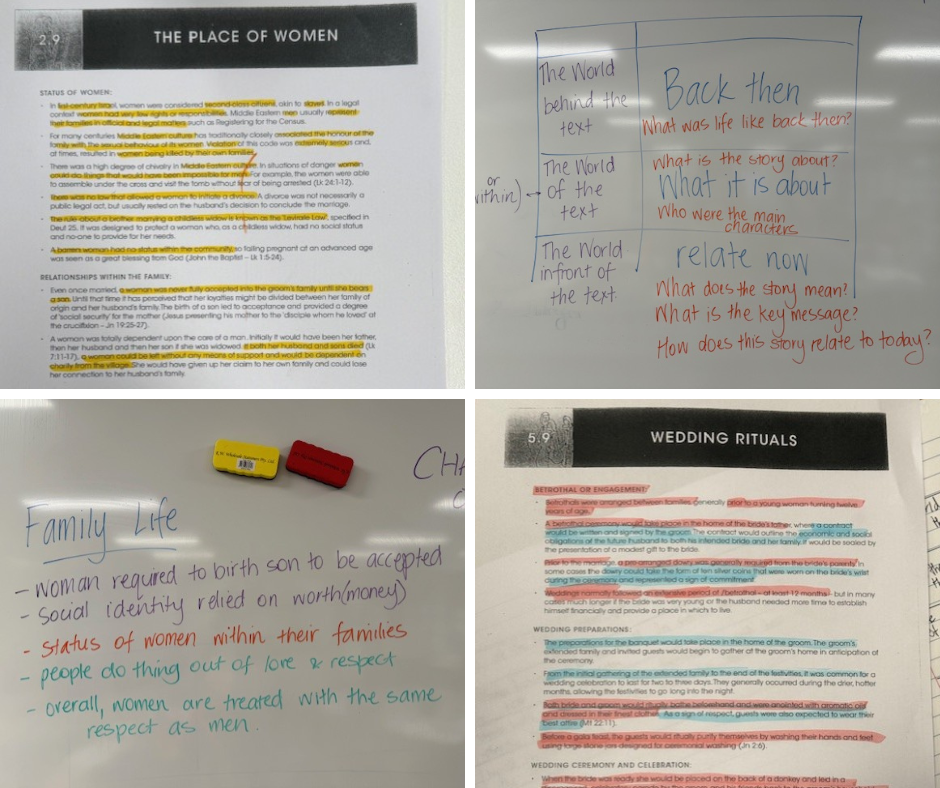 2.9
THE PLACE OF WOMEN
STATUS OF WOMEN:
• In first-century Israel, women were considered second-class citizens, akin to slaves. In a legal
context women had very few rights or responsibilities. Middle Eastern men usually represent
their families in official and legal matters such as Registering for the Census.
• For many centuries Middle Eastern culture has traditionally closely associated the honour of the
family with the sexual behaviour of its women. Violation of this code was extremely serious and,
at times, resulted in women being killed by their own families.
• There was a high degree of chivalry in Middle Eastern culture. In situations of danger women
could do things that would have been impossible for men. For example, the women were able
to assemble under the cross and visit the tomb without fear of being arrested (Lk 24:1-12).
• There was no law that allowed a woman to initiate a divorce. A divorce was not necessarily a
public legal act, but usually rested on the husband's decision to conclude the marriage.
• The rule about a brother marrying a childless widow is known as the 'Levirate Law', specified in
Deut 25. It was designed to protect a woman who, as a childless widow, had no social status
and no-one to provide for her needs.
• A barren woman had no status within the community, so falling pregnant at an advanced age
was seen as a great blessing from God (John the Baptist – Lk 1:5-24).
RELATIONSHIPS WITHIN THE FAMILY:
• Even once married, a woman was never fully accepted into the groom's family until she bears
a son. Until that time it was perceived that her loyalties might be divided between her family of
origin and her husband's family. The birth of a son led to acceptance and provided a degree
of 'social security' for the mother (Jesus presenting his mother to the 'disciple whom he loved' at
the crucifixion – Jn 19:25-27).
• A woman was totally dependent upon the care of a man. Initially it would have been her father,
then her husband and then her son if she was widowed. If both her husband and sons died (Lk
7:11-17), a woman could be left without any means of support and would be dependent on
charity from the village. She would have given up her claim to her own family and could lose
her connection to her husband's family.
The World
behind the
text
Back then
What was life like back then?
or
within)
The World
of the
text
What is the story about?
What it is about
Who were the main
characters
The World
infront of
the text
relate now
What does the story mean?
What is the key message?
How does this story relate to today?
CH
Family Life
- woman required to birth son to be accepted
- social identity relied on worth(money)
- status of women within their families
- people do thing out of love & respect
- overall, women are treated with the same
respect as men.
5.9
WEDDING RITUALS
BETROTHAL OR ENGAGEMENT:
• Betrothals were arranged between families generally prior to a young woman turning twelve
years of age.
• A betrothal ceremony would take place in the home of the bride's father, where a contract
would be written and signed by the groom. The contract would outline the economic and social
obligations of the future husband to both his intended bride and her family. It would be sealed by
the presentation of a modest gift to the bride.
• Prior to the marriage, a pre-arranged dowry was generally required from the bride's parents. In
some cases the dowry could take the form of ten silver coins that were worn on the bride's wrist
during the ceremony and represented a sign of commitment.
• Weddings normally followed an extensive period of betrothal – at least 12 months - but in many
cases much longer if the bride was very young or the husband needed more time to establish
himself financially and provide a place in which to live.
WEDDING PREPARATIONS:
• The preparations for the banquet would take place in the home of the groom. The groom's
extended family and invited guests would begin to gather at the groom's home in anticipation of
the ceremony.
• From the initial gathering of the extended family to the end of the festivities, it was common for a
wedding celebration to last for two to three days. They generally occurred during the drier, hotter
months, allowing the festivities to go long into the night.
• Both bride and groom would ritually bathe beforehand and were anointed with aromatic oils
and dressed in their finest clothes. As a sign of respect, guests were also expected to wear their
best attire (Mt 22:11).
• Before a gala feast, the guests would ritually purify themselves by washing their hands and feet
using large stone jars designed for ceremonial washing (Jn 2:6).
WEDDING CEREMONY AND CELEBRATION:
• When the bride was ready she would be placed on the back of a donkey and led in a